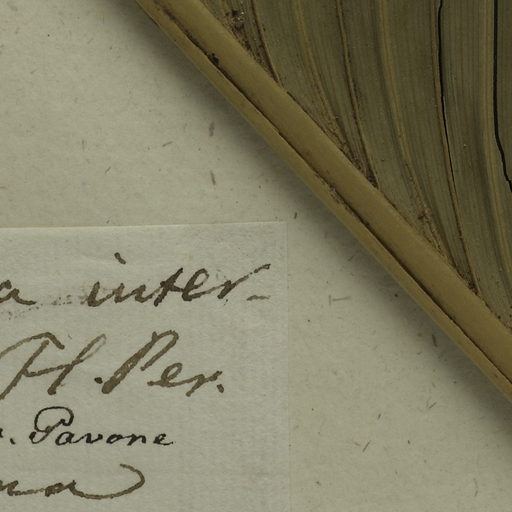 a inter-
Fl. Per.
r. Pavone
na